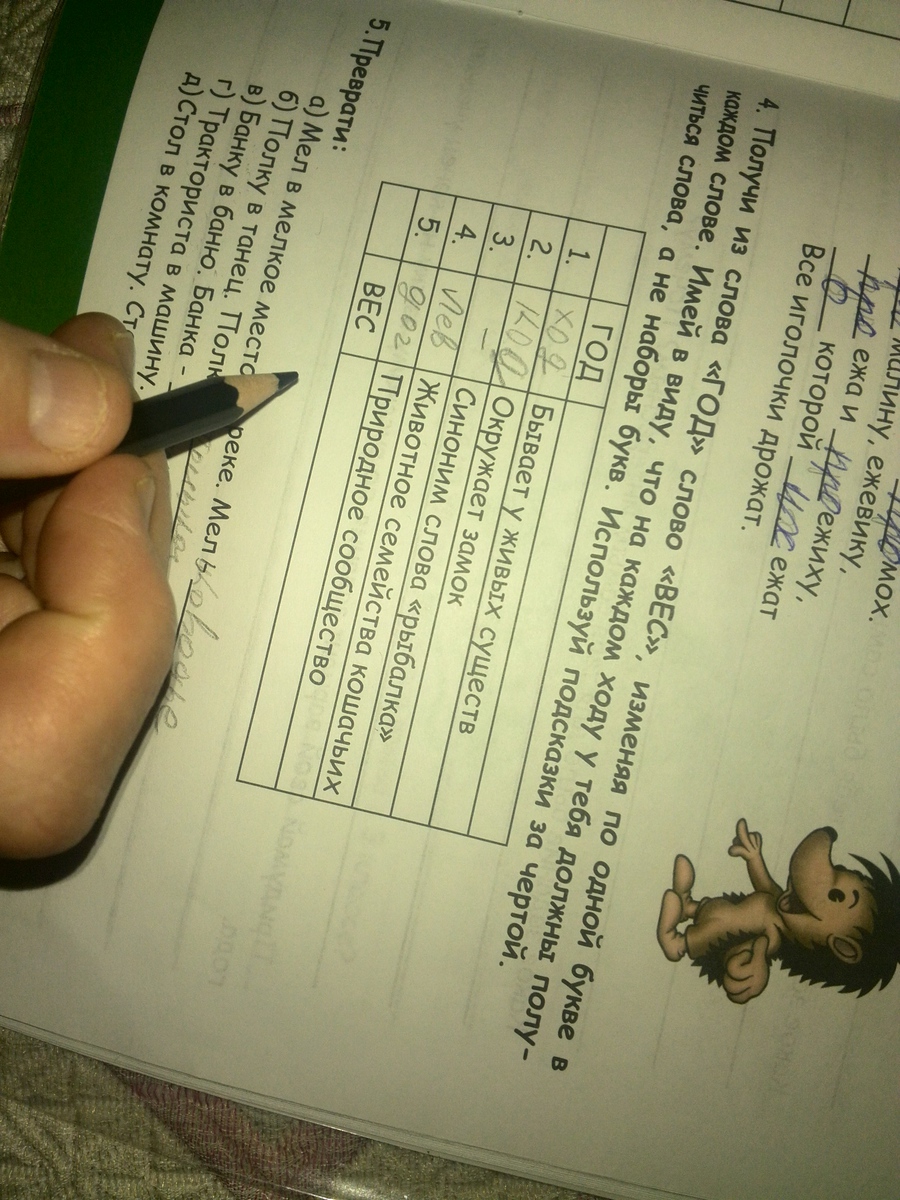 малину, ежевику,
мох.
про ежа и про ежиху,
в которой
Все иголочки дрожат.
ежат
4. Получи из слова «ГОД» слово «ВЕС», изменяя по одной букве в
каждом слове. Имей в виду, что на каждом ходу у тебя должны полу-
читься слова, а не наборы букв. Используй подсказки за чертой.
ГОД
1. ход Бывает у живых существ
2. код Окружает замок
3. Синоним слова «рыбалка»
4. лев Животное семейства кошачьих
5. Природное сообщество
ВЕС
5.Превра­ти:
а) Мел в мелкое место
реке. Мель
б) Полку в танец. Пол
в) Банку в баню. Банка -
г) Тракториста в машину.
д) Стол в комнату. Ст